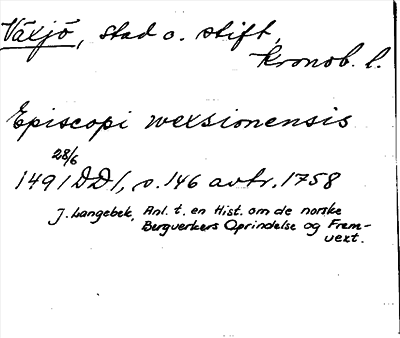 Växjö, stad o. stift,
Kronob. l.
Episcopi wexsionensis
28/6
1491 DD1, s. 146 avtr. 1758
J. Langebek, Anl. t. en Hist. om de norske
Bergverkers Oprindelse og Frem-
vext.